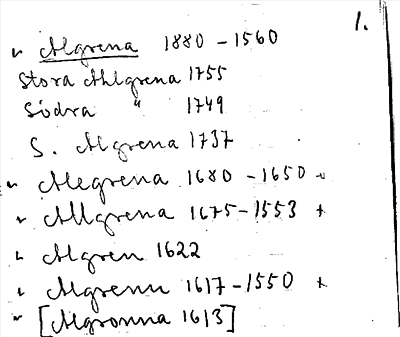 1.
" Algrena 1880 - 1560
Stora Ahlgrena 1755
Södra " 1749
S. Algrena 1737
" Alegrena 1680 - 1650 +
" Allgrena 1675 - 1553 +
" Algren 1622
" Algrenn 1617 - 1550 +
" [Algronna 1613]